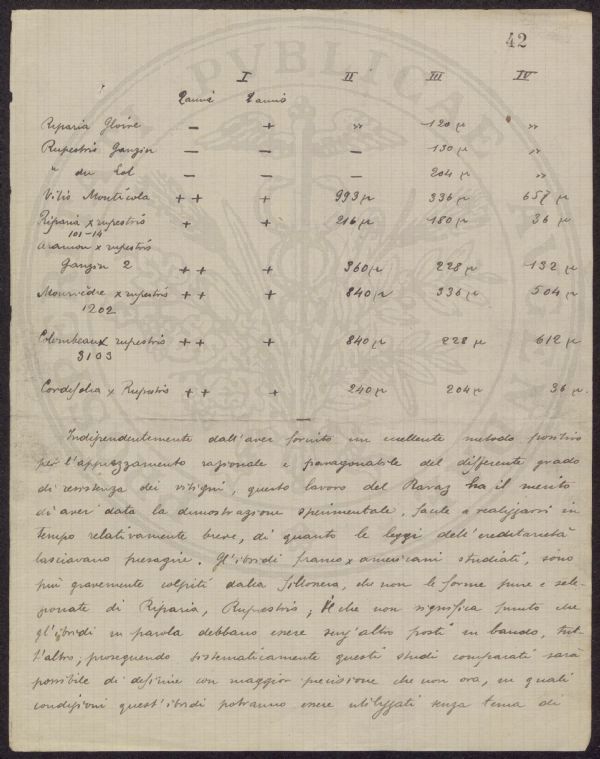 42
I II III IV
Riparia Gloire — + " 120 µ "
Rupestris Ganzin — — — 130 µ "
" du Lot — — — 204 µ "
Vitis Monticola ++ + 993 µ 336 µ 657 µ
Riparia x rupestris + + 216 µ 180 µ 36 µ
101-14
Aramon x rupestris
Ganzin 2 ++ + 360 µ 228 µ 132 µ
Mourvèdre x rupestris ++ + 840 µ 336 µ 504 µ
1202
Colombeau x rupestris ++ + 840 µ 228 µ 612 µ
3103
Cordifolia x Rupestris ++ + 240 µ 204 µ 36 µ
Indipendentemente dall'aver fornito un eccellente metodo positivo
per l'apprezzamento razionale e paragonabile del differente grado
di resistenza dei vitigni, questo lavoro del Ravaz ha il merito
di aver data la dimostrazione sperimentale, facile a realizzarsi in
tempo relativamente breve, di quanto le leggi dell'ereditarietà
lasciavano presagire. Gl'ibridi franco x americani studiati, sono
più gravemente colpiti dalla fillossera, che non le forme pure e sele-
zionate di Riparia, Rupestris; il che non significa punto che
gl'ibridi in parola debbano essere senz'altro posti in bando, tut-
t'altro; proseguendo sistematicamente questi studi comparati sarà
possibile di definire con maggior precisione che non ora, in quali
condizioni quest'ibridi potranno essere utilizzati senza tema di